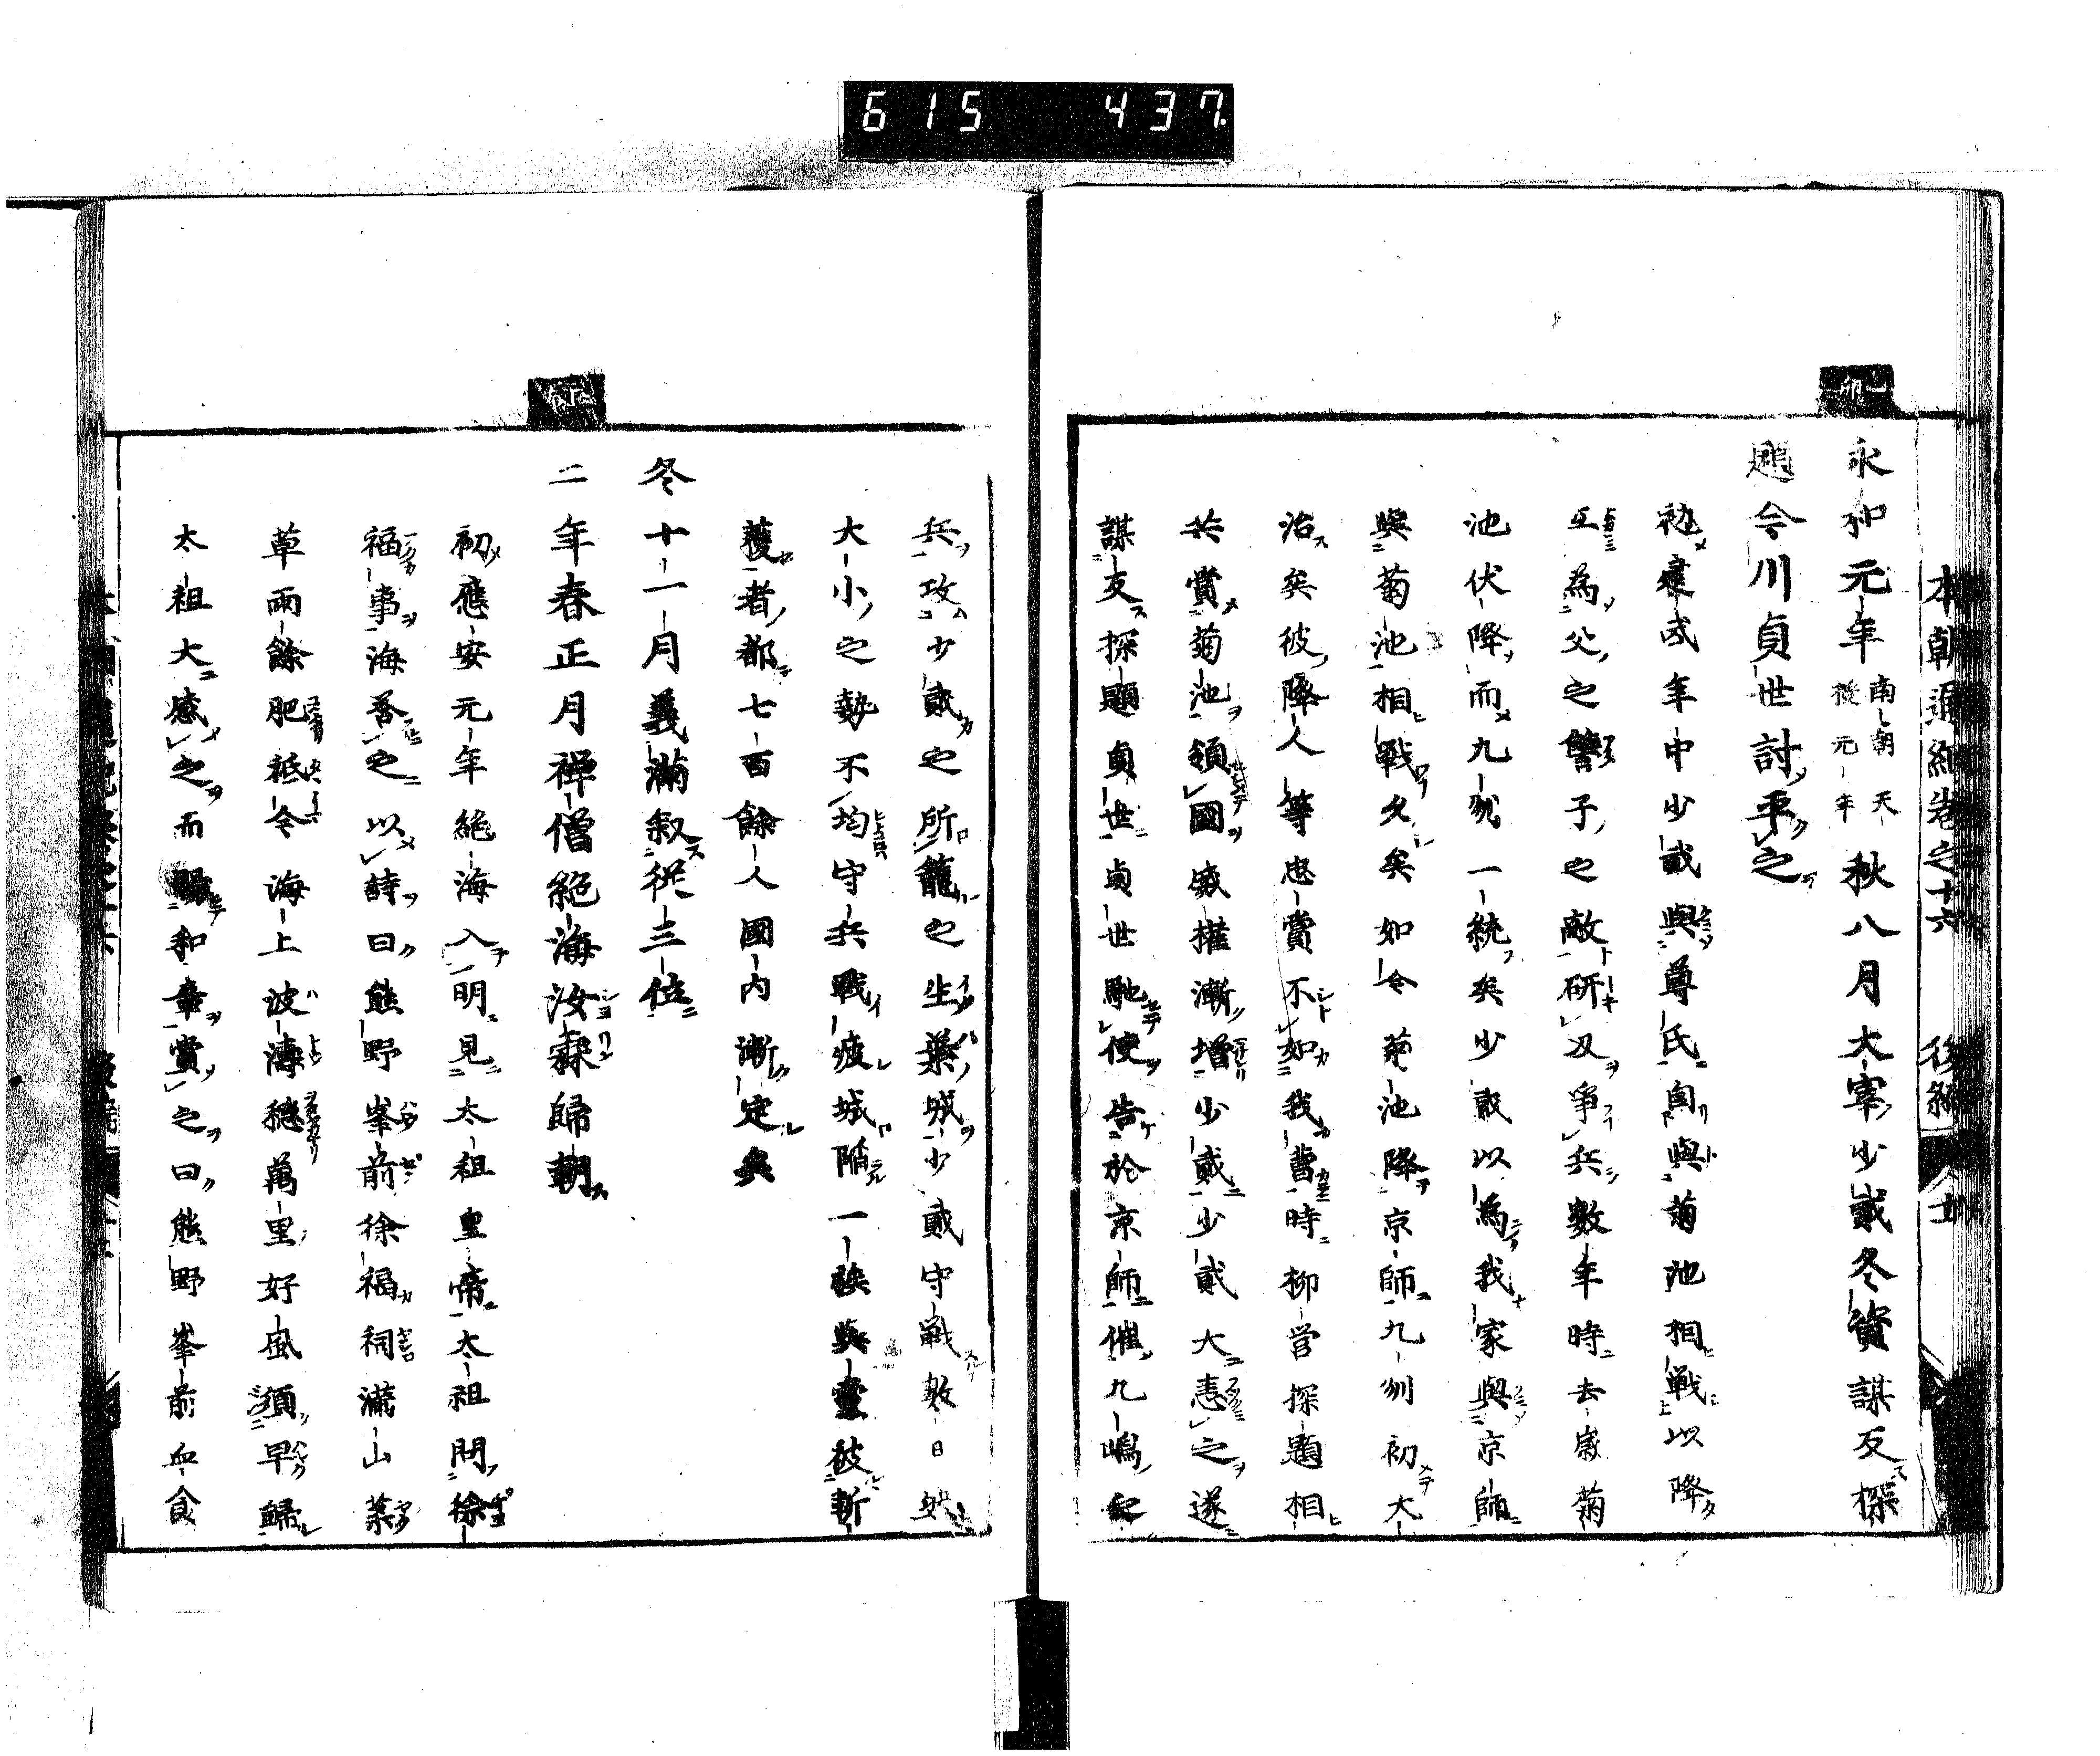 615 437.
本朝通紀卷之十六 後編
永和元年南朝天授元年秋八月太宰少貳冬資謀反探
題今川貞世討平之
初建武年中少貳與尊氏自與菊池相戰以降
互為父之讐子之敵研刄爭兵數年時去歲菊
池伏降而九州一統矣少貳以為我家與京師
與菊池相戰久矣如今菊池降京師九州初大
治矣彼降人等忠賞不如我曹時柳營探題相
共賞菊池領國威權漸增少貳少貳大恚之遂
謀反探題貞世貞世馳使告於京師催九嶋之
兵攻少貳之所籠之生葉城少貳守戰數日然
大小之勢不均守兵戰疲城陷一族與黨被斬
獲者都七百餘人國內漸定矣
冬十一月義滿叙從三位
二年春正月禅僧絕海汝霖歸朝
初應安元年絕海入明見太祖皇帝太祖問徐
福事海答之以詩曰熊野峯前徐福祠滿山藥
草雨餘肥祇今海上波濤穩萬里好風須早歸
太祖大感之而賜和章賞之曰熊野峯前血食